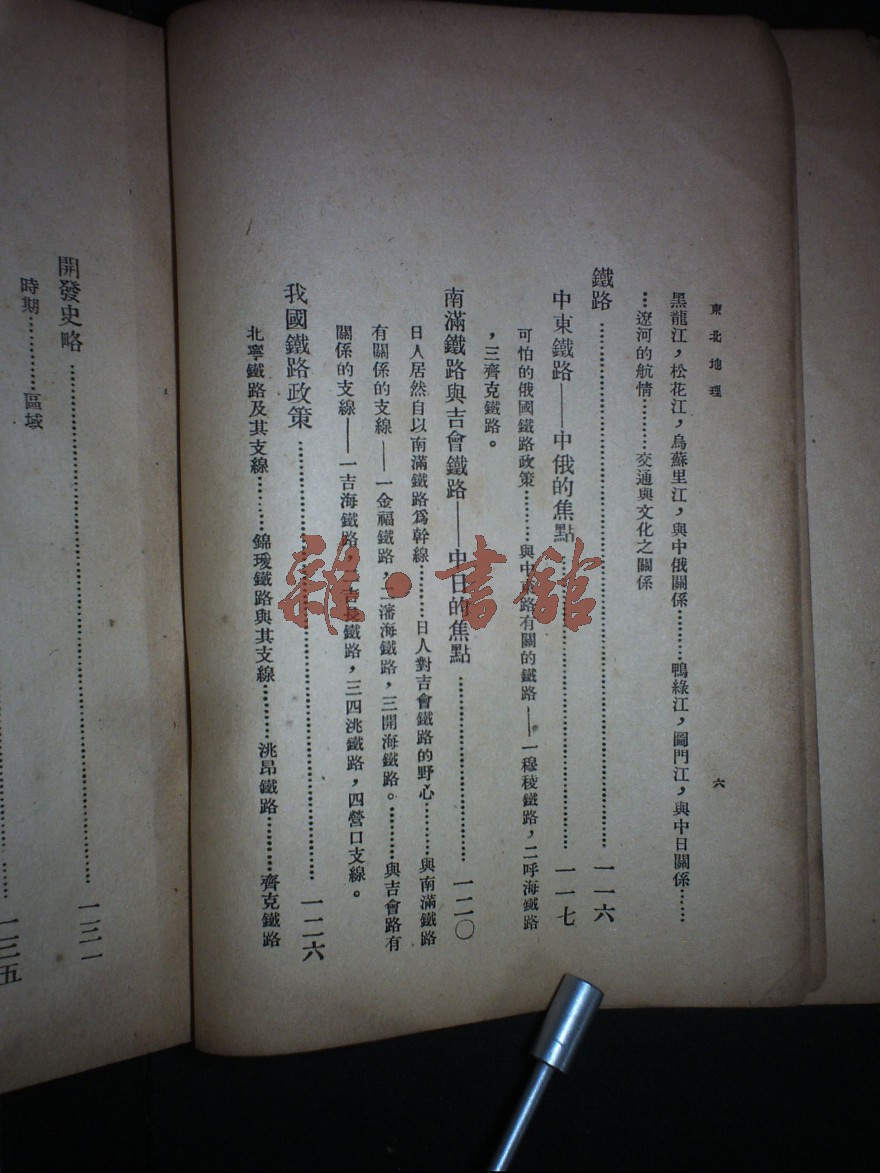 東北地理
六
黑龍江，松花江，烏蘇里江，與中俄關係………鴨綠江，圖門江，與中日關係……
…遼河的航情………交通與文化之關係
鐵路………一一六
中東鐵路——中俄的焦點………一一七
可怕的俄國鐵路政策………與中東路有關的鐵路——一穆稜鐵路，二呼海鐵路
，三齊克鐵路。
南滿鐵路與吉會鐵路——中日的焦點………一二〇
日人居然自以南滿鐵路爲幹線………日人對吉會鐵路的野心………與南滿鐵路
有關係的支線——一金福鐵路，二瀋海鐵路，三開海鐵路。………與吉會路有
關係的支線——一吉海鐵路，二吉長鐵路，三四洮鐵路，四營口支線。
我國鐵路政策………一二六
北寧鐵路及其支線………錦璦鐵路與其支線………洮昂鐵路………齊克鐵路
開發史略………一三一
時期………區域
一三五
雜·書館